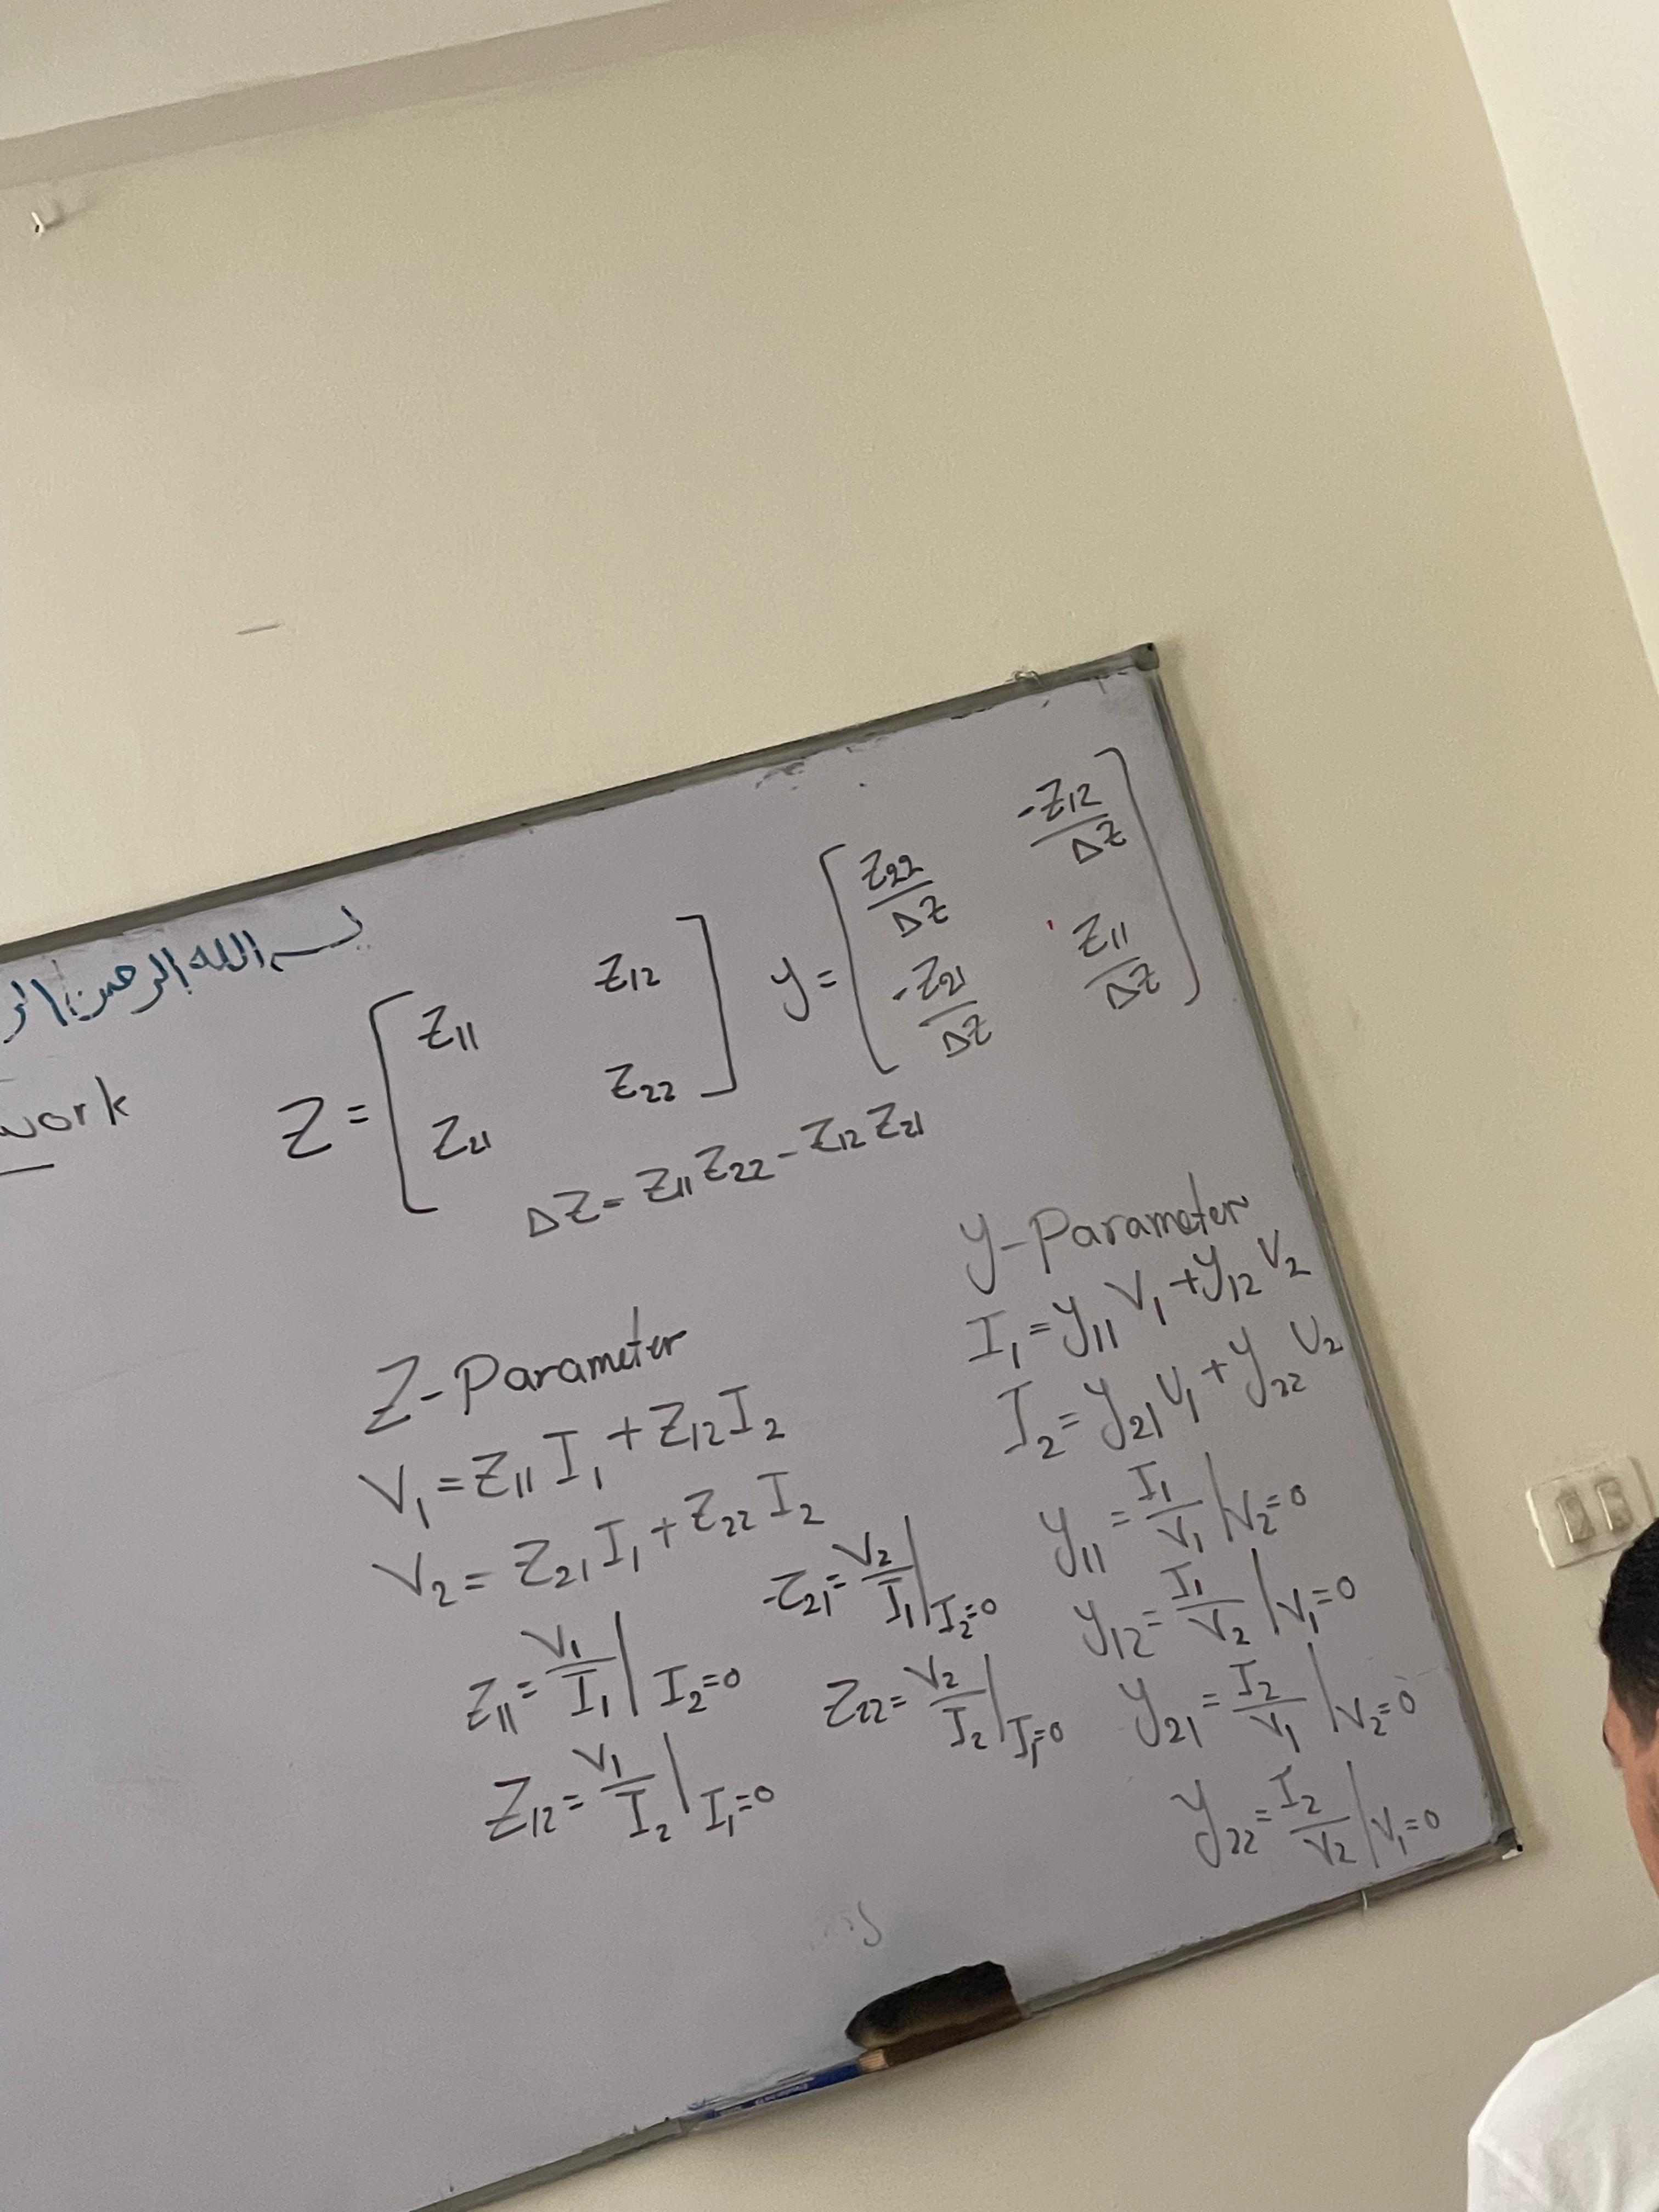 بسم الله الرحمن الر
work
Z = [ Z11 Z12
Z21 Z22 ]
y = [ Z22/ΔZ -Z12/ΔZ
-Z21/ΔZ Z11/ΔZ ]
ΔZ = Z11 Z22 - Z12 Z21
Z-Parameter
V1 = Z11 I1 + Z12 I2
V2 = Z21 I1 + Z22 I2
Z11 = V1/I1 | I2=0
Z12 = V1/I2 | I1=0
-Z21 = V2/I1 | I2=0
Z22 = V2/I2 | I1=0
y-Parameter
I1 = y11 V1 + y12 V2
I2 = y21 V1 + y22 V2
y11 = I1/V1 | V2=0
y12 = I1/V2 | V1=0
y21 = I2/V1 | V2=0
y22 = I2/V2 | V1=0